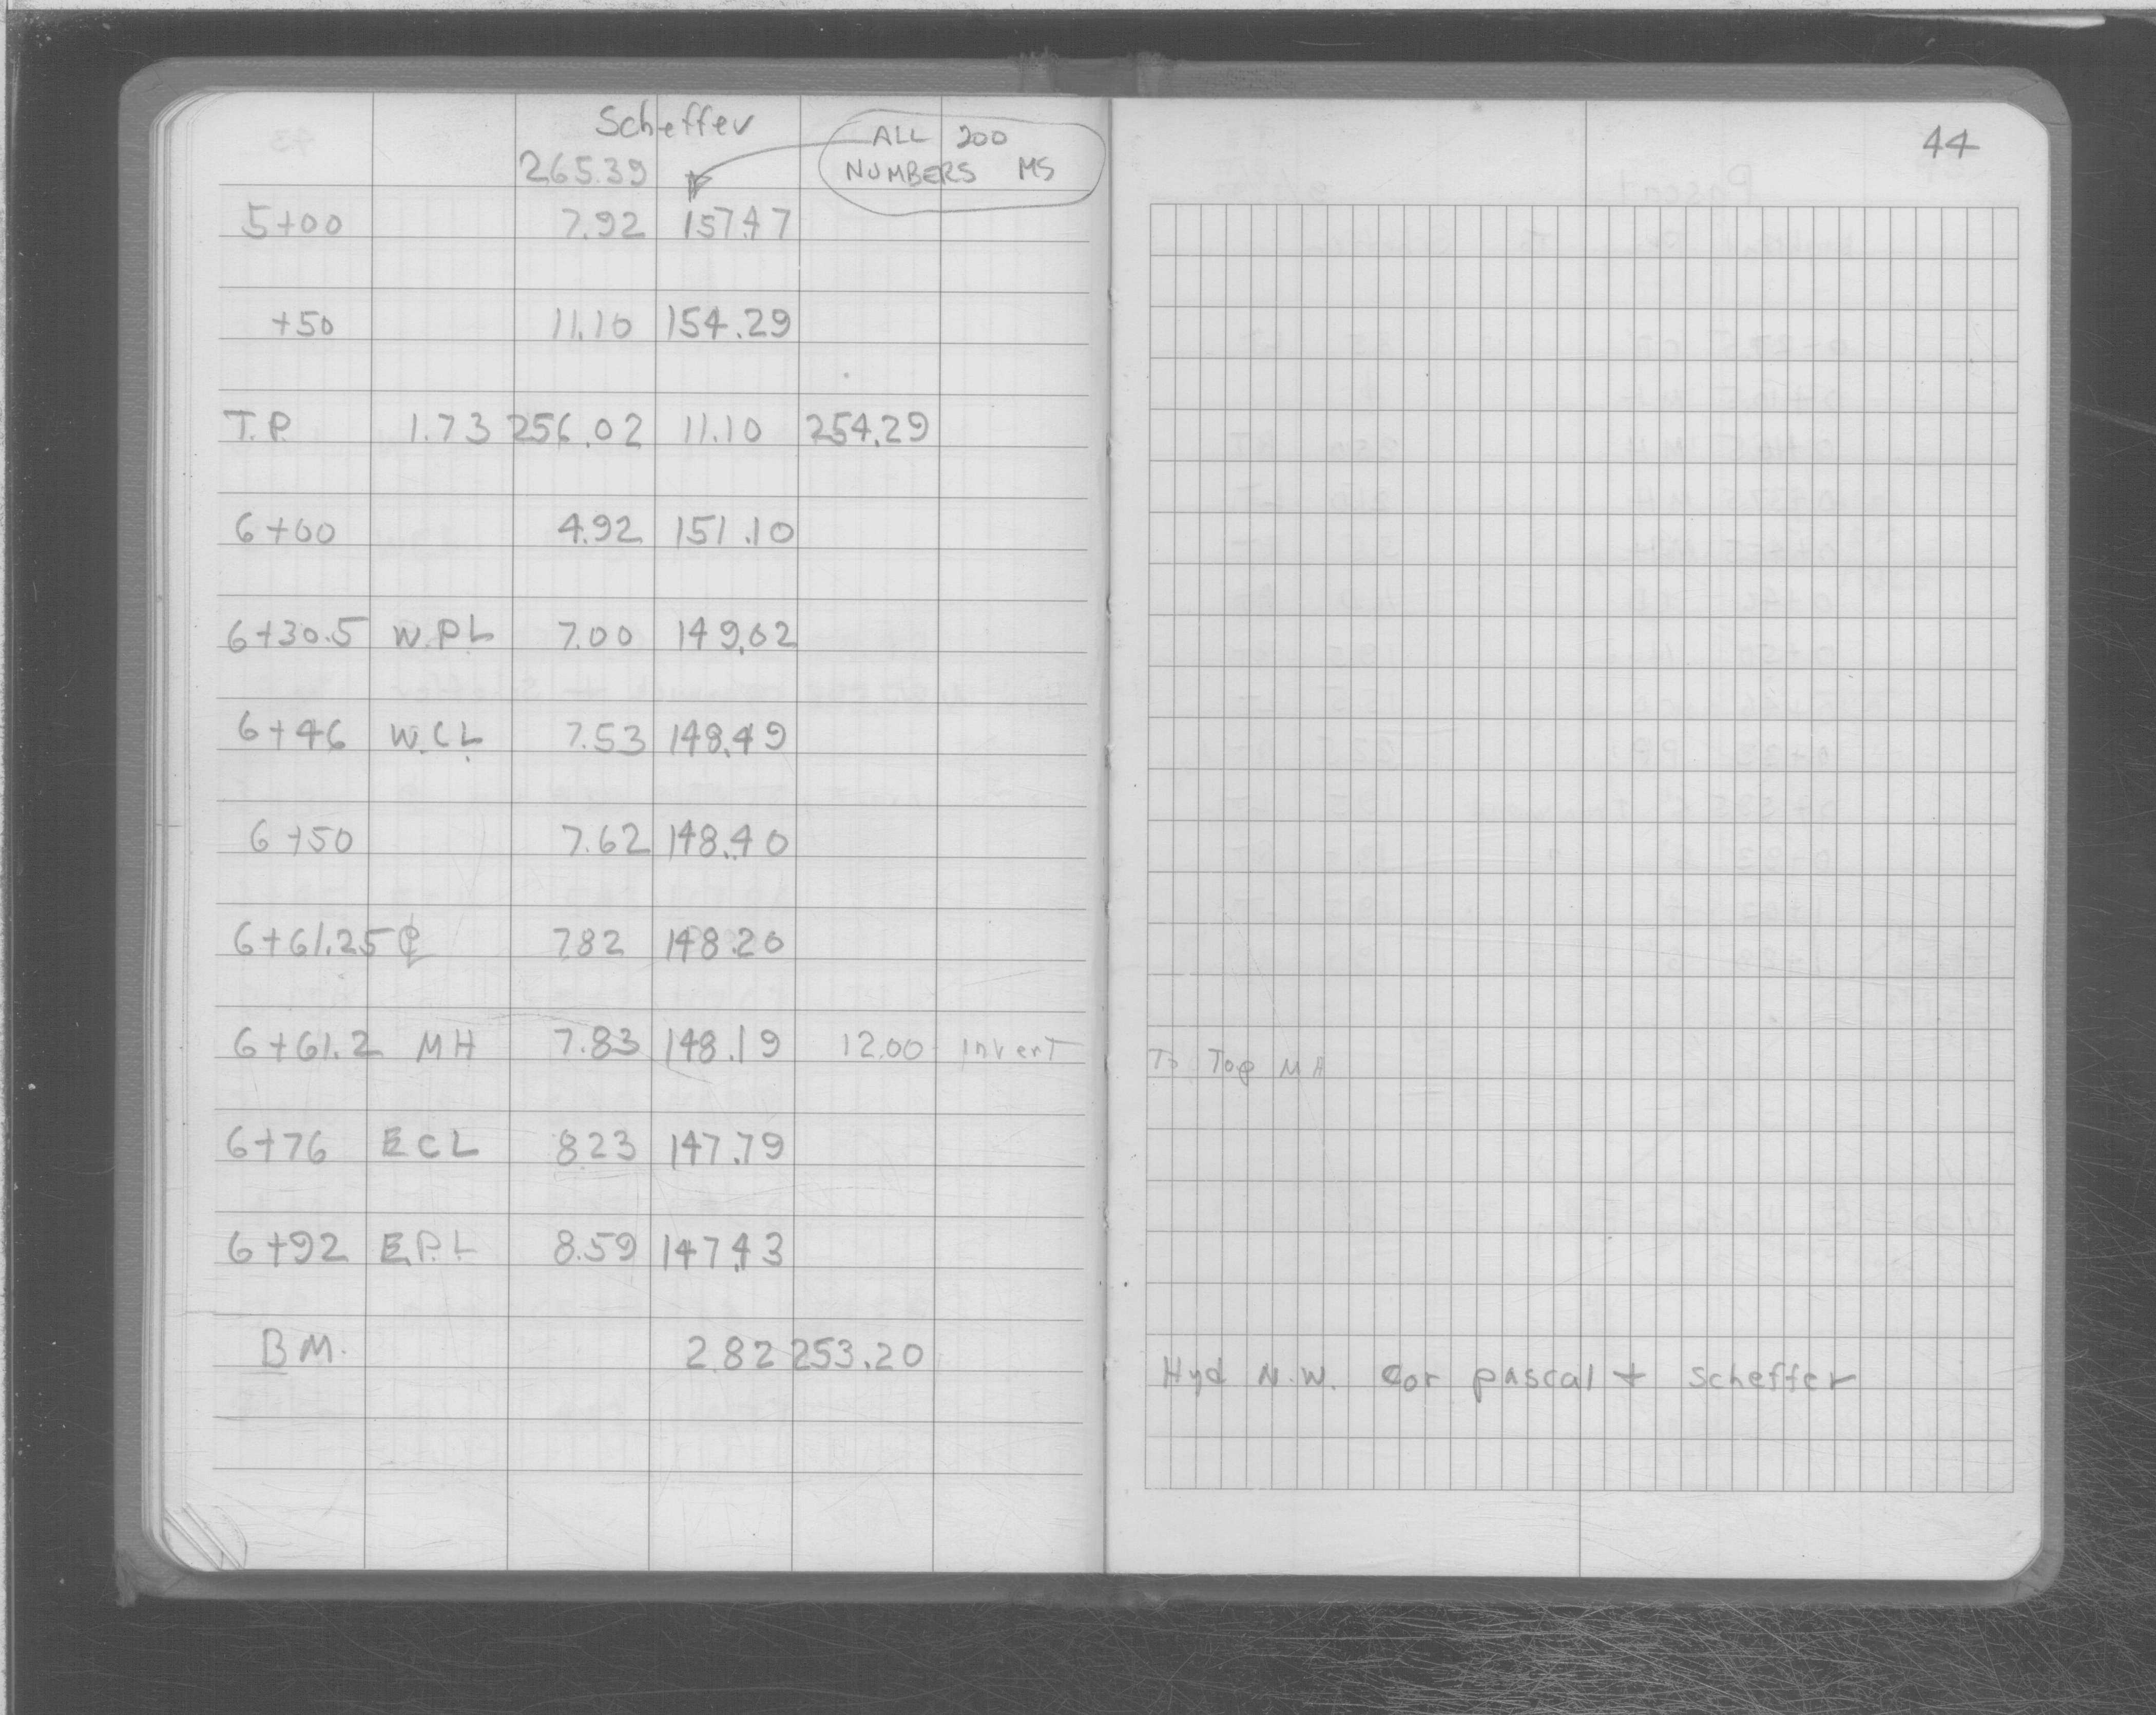 Scheffer
ALL 200
265.39
NUMBERS MS
5+00 7.92 157.47
+50 11.10 154.29
T.P. 1.73 256.02 11.10 254.29
6+00 4.92 151.10
6+30.5 W.P.L 7.00 149.02
6+46 W.C.L 7.53 148.49
6+50 7.62 148.40
6+61.25 ₵ 7.82 148.20
6+61.2 MH 7.83 148.19 12.00 invert To Top MH
6+76 E C L 8.23 147.79
6+92 E.P.L 8.59 147.43
B M. 2.82 253.20 Hyd N.W. Cor pascal + scheffer
44